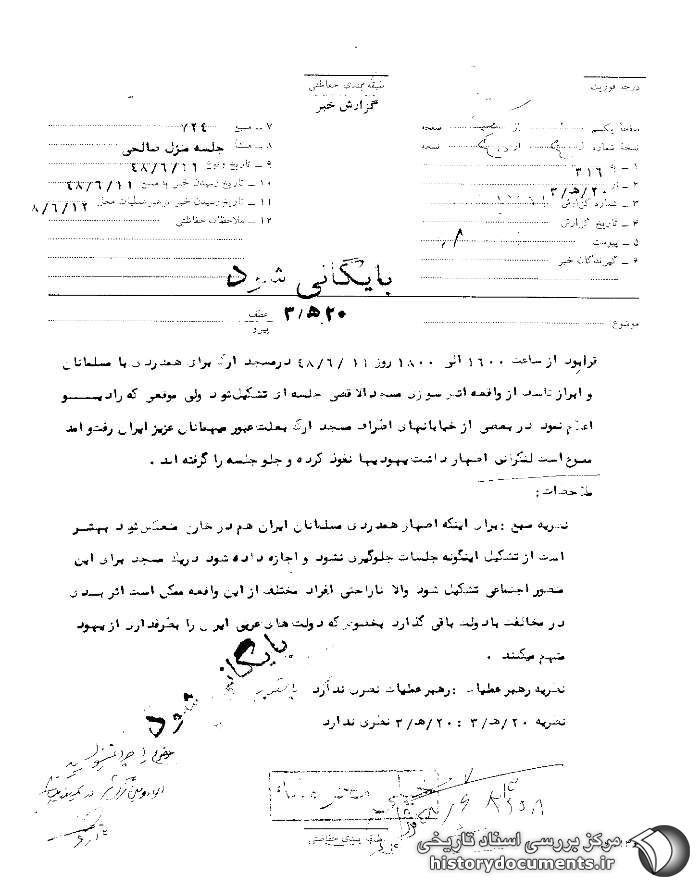 درجه فوریت
طبقه بندی حفاظتی
گزارش خبر
صفحه یکم از صفحه
نسخه شماره از نسخه
۱ ـ ۳۱۶
۲ ـ ۲۰/هـ/۳
۳ ـ شماره گزارش
۴ ـ تاریخ گزارش
۵ ـ پیوست
۶ ـ گیرندگان خبر
۷ ـ منبع ۷۲۴
۸ ـ منشأ جلسه منزل صالحی
۹ ـ تاریخ وقوع ۴۸/۶/۱۱
۱۰ ـ تاریخ رسیدن خبر به منبع ۴۸/۶/۱۱
۱۱ ـ تاریخ رسیدن خبر به رهبر عملیات محل ۸/۶/۱۲
۱۲ ـ ملاحظات حفاظتی
بایگانی شود
موضوع
عطف
پیرو
۲۰/هـ/۳
قرار بود از ساعت ۱۶۰۰ الی ۱۸۰۰ روز ۱۱ /۴۸/۶ در مسجد ارک برای همدردی با مسلمانان
و ابراز تاسف از واقعه آتش سوزی مسجد الاقصی جلسه ای تشکیل شود ولی موقعی که رادیو
اعلام نمود در بعضی از خیابانهای اطراف مسجد ارک بعلت عبور میهمانان عزیز ایران رفت و آمد
ممنوع است لنکرانی اظهار داشت یهودیها نفوذ کرده و جلو جلسه را گرفته اند .
ملاحظات :
نظریه منبع : برای اینکه اظهار همدردی مسلمانان ایران هم در خارج منعکس شود بهتر
است از تشکیل اینگونه جلسات جلوگیری نشود و اجازه داده شود در یک مسجد برای این
منظور اجتماعی تشکیل شود والا ناراحتی افراد مختلف از این واقعه ممکن است اثر بدی
در مخالفت با دولت باقی گذارد بخصوص که دولت های عربی ایران را بطرفداری از یهود
متهم میکنند .
نظریه رهبر عملیات : رهبر عملیات نظری ندارد
نظریه ۲۰/هـ/۳ : ۲۰/هـ/۳ نظری ندارد
بایگانی شود
طبقه بندی حفاظتی
مرکز بررسی اسناد تاریخی
historydocuments.ir